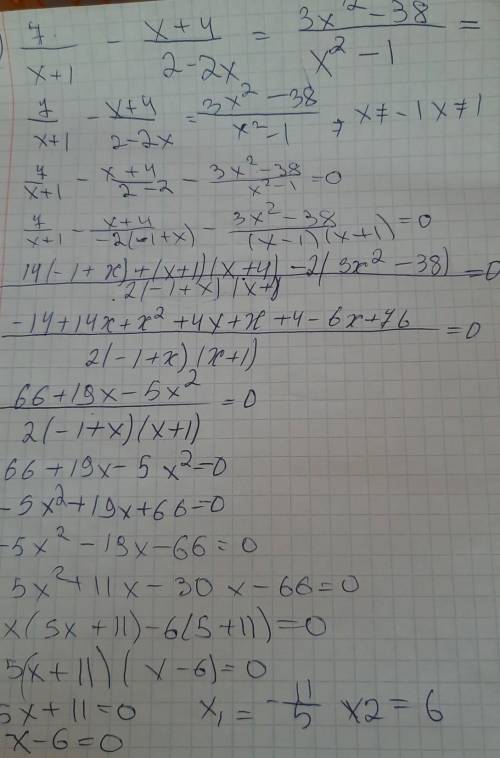 7/(x+1) - (x+4)/(2-2x) = (3x²-38)/(x²-1) =
7/(x+1) - (x+4)/(2-2x) = (3x²-38)/(x²-1), x≠-1 x≠1
7/(x+1) - (x+4)/(2-2) - (3x²-38)/(x²-1) = 0
7/(x+1) - (x+4)/(-2(-1+x)) - (3x²-38)/((x-1)(x+1)) = 0
(14(-1+x)+(x+1)(x+4)-2(3x²-38))/(2(-1+x)(x+1)) = 0
(-14+14x+x²+4x+x+4-6x+76)/(2(-1+x)(x+1)) = 0
(66+19x-5x²)/(2(-1+x)(x+1)) = 0
66+19x-5x²=0
-5x²+19x+66=0
-5x²-19x-66=0
5x²+11x-30x-66=0
x(5x+11)-6(5+11)=0
5(x+11)(x-6)=0
5x+11=0 x₁=-11/5 x2=6
x-6=0